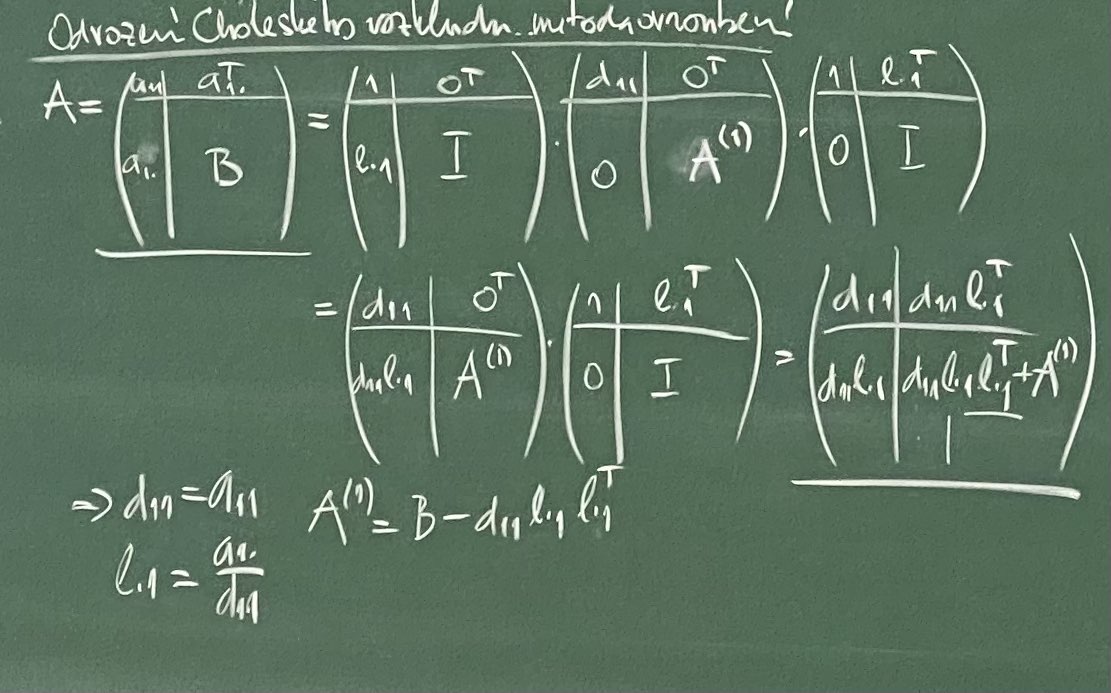 Odvození Choleského rozkladu metodou ovroubení
A = ( a₁₁ | a₁.ᵀ ; a₁. | B ) = ( 1 | 0ᵀ ; l.₁ | I ) · ( d₁₁ | 0ᵀ ; 0 | A⁽¹⁾ ) · ( 1 | l.₁ᵀ ; 0 | I )
= ( d₁₁ | 0ᵀ ; d₁₁l.₁ | A⁽¹⁾ ) · ( 1 | l.₁ᵀ ; 0 | I ) = ( d₁₁ | d₁₁l.₁ᵀ ; d₁₁l.₁ | d₁₁l.₁l.₁ᵀ + A⁽¹⁾ )
⇒ d₁₁ = a₁₁ A⁽¹⁾ = B − d₁₁ l.₁ l.₁ᵀ
l.₁ = a₁. / d₁₁